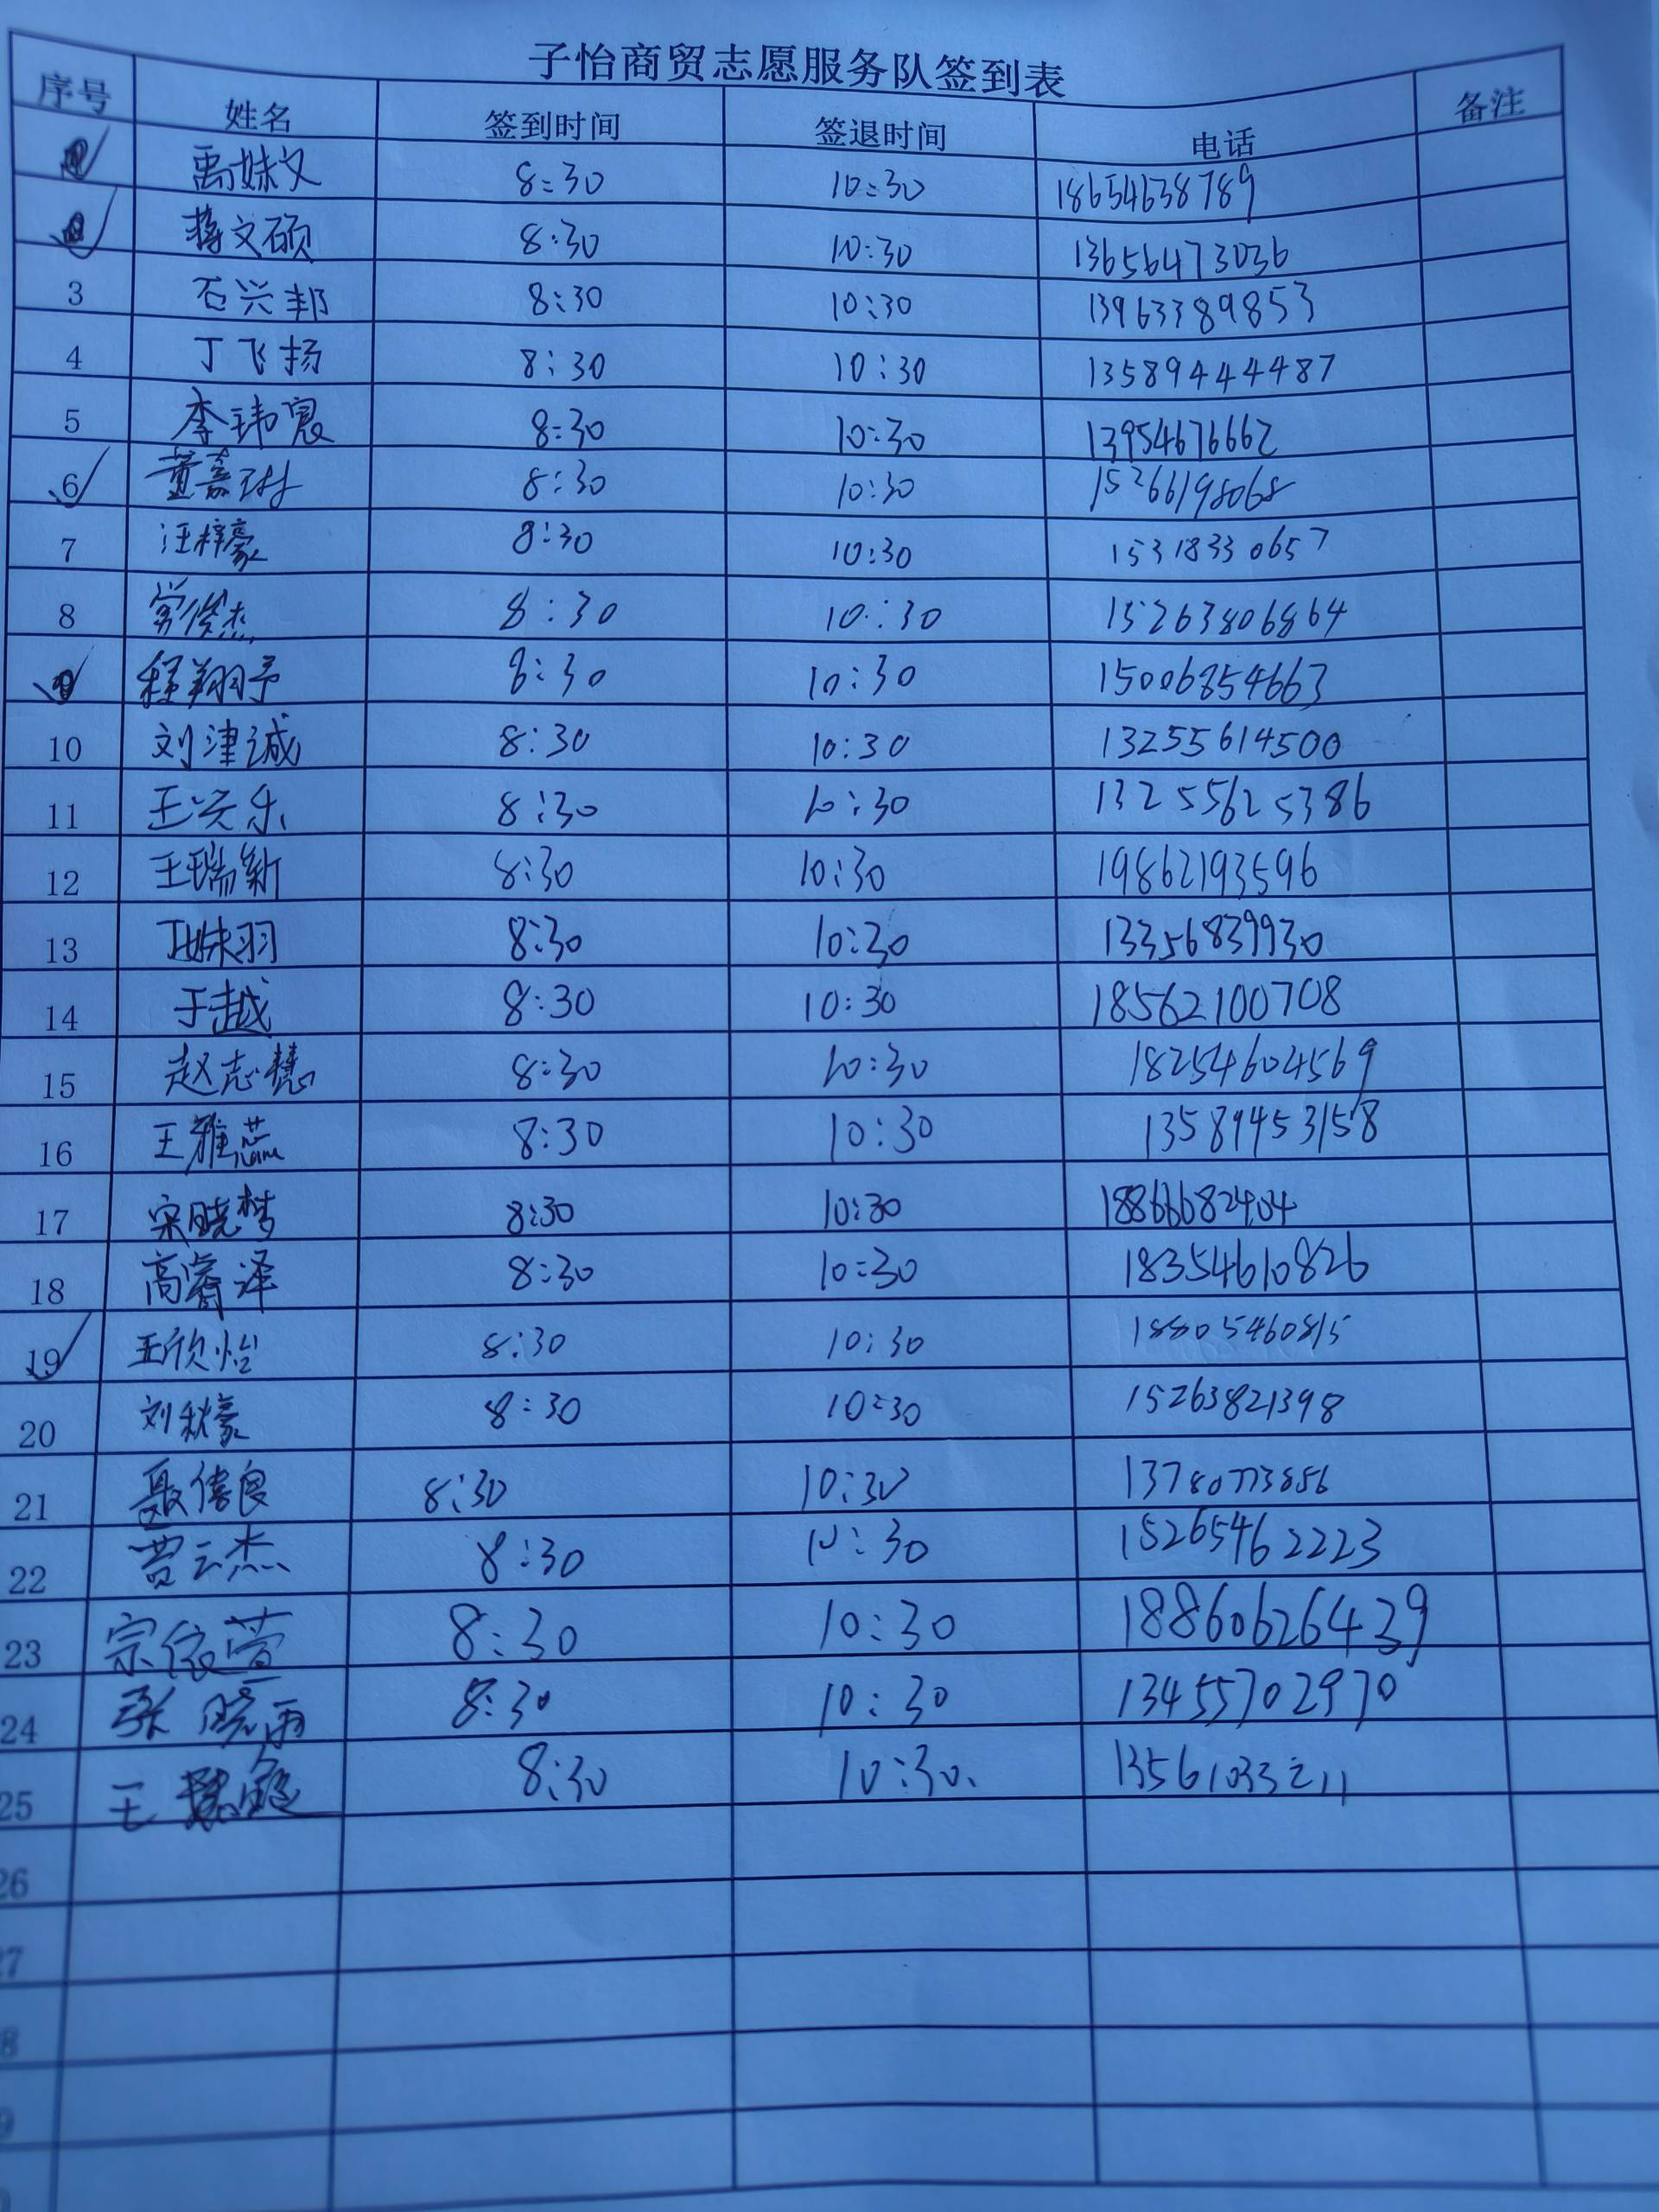 子怡商贸志愿服务队签到表
序号 姓名 签到时间 签退时间 电话 备注
禹姝文 8:30 10:30 18654638789
蒋文硕 8:30 10:30 13656473036
3 石兴邦 8:30 10:30 13963389853
4 丁飞扬 8:30 10:30 13589444487
5 李玮宸 8:30 10:30 13954676662
6 董嘉琳 8:30 10:30 15266198068
7 汪梓豪 8:30 10:30 15318330657
8 常俊杰 8:30 10:30 15263806864
程翔予 8:30 10:30 15006854663
10 刘津诚 8:30 10:30 13255614500
11 王兴乐 8:30 10:30 13255625386
12 王瑞新 8:30 10:30 19862193596
13 丁姝羽 8:30 10:30 13356839930
14 于越 8:30 10:30 18562100708
15 赵志慧 8:30 10:30 18254604569
16 王雅蕊 8:30 10:30 13589453158
17 宋晓梦 8:30 10:30 18866682404
18 高睿泽 8:30 10:30 18354610826
19 王欣怡 8:30 10:30 18805460815
20 刘秋豪 8:30 10:30 15263821398
21 聂信良 8:30 10:30 13780773856
22 曹云杰 8:30 10:30 15265462223
23 宗依萱 8:30 10:30 18860626439
24 张晓雨 8:30 10:30 13455702970
25 王 8:30 10:30. 13561033211
26